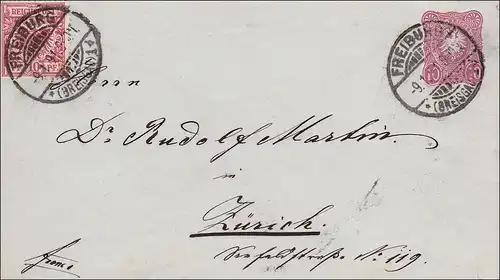 REICHSPOST
10
FREIBURG
* (BREISGAU)
FREIBURG
-9.
* (BREISGAU)
10
Herrn
Dr. Rudolf Martin.
in
Zürich.
Seefeldstraße No. 119.
franco